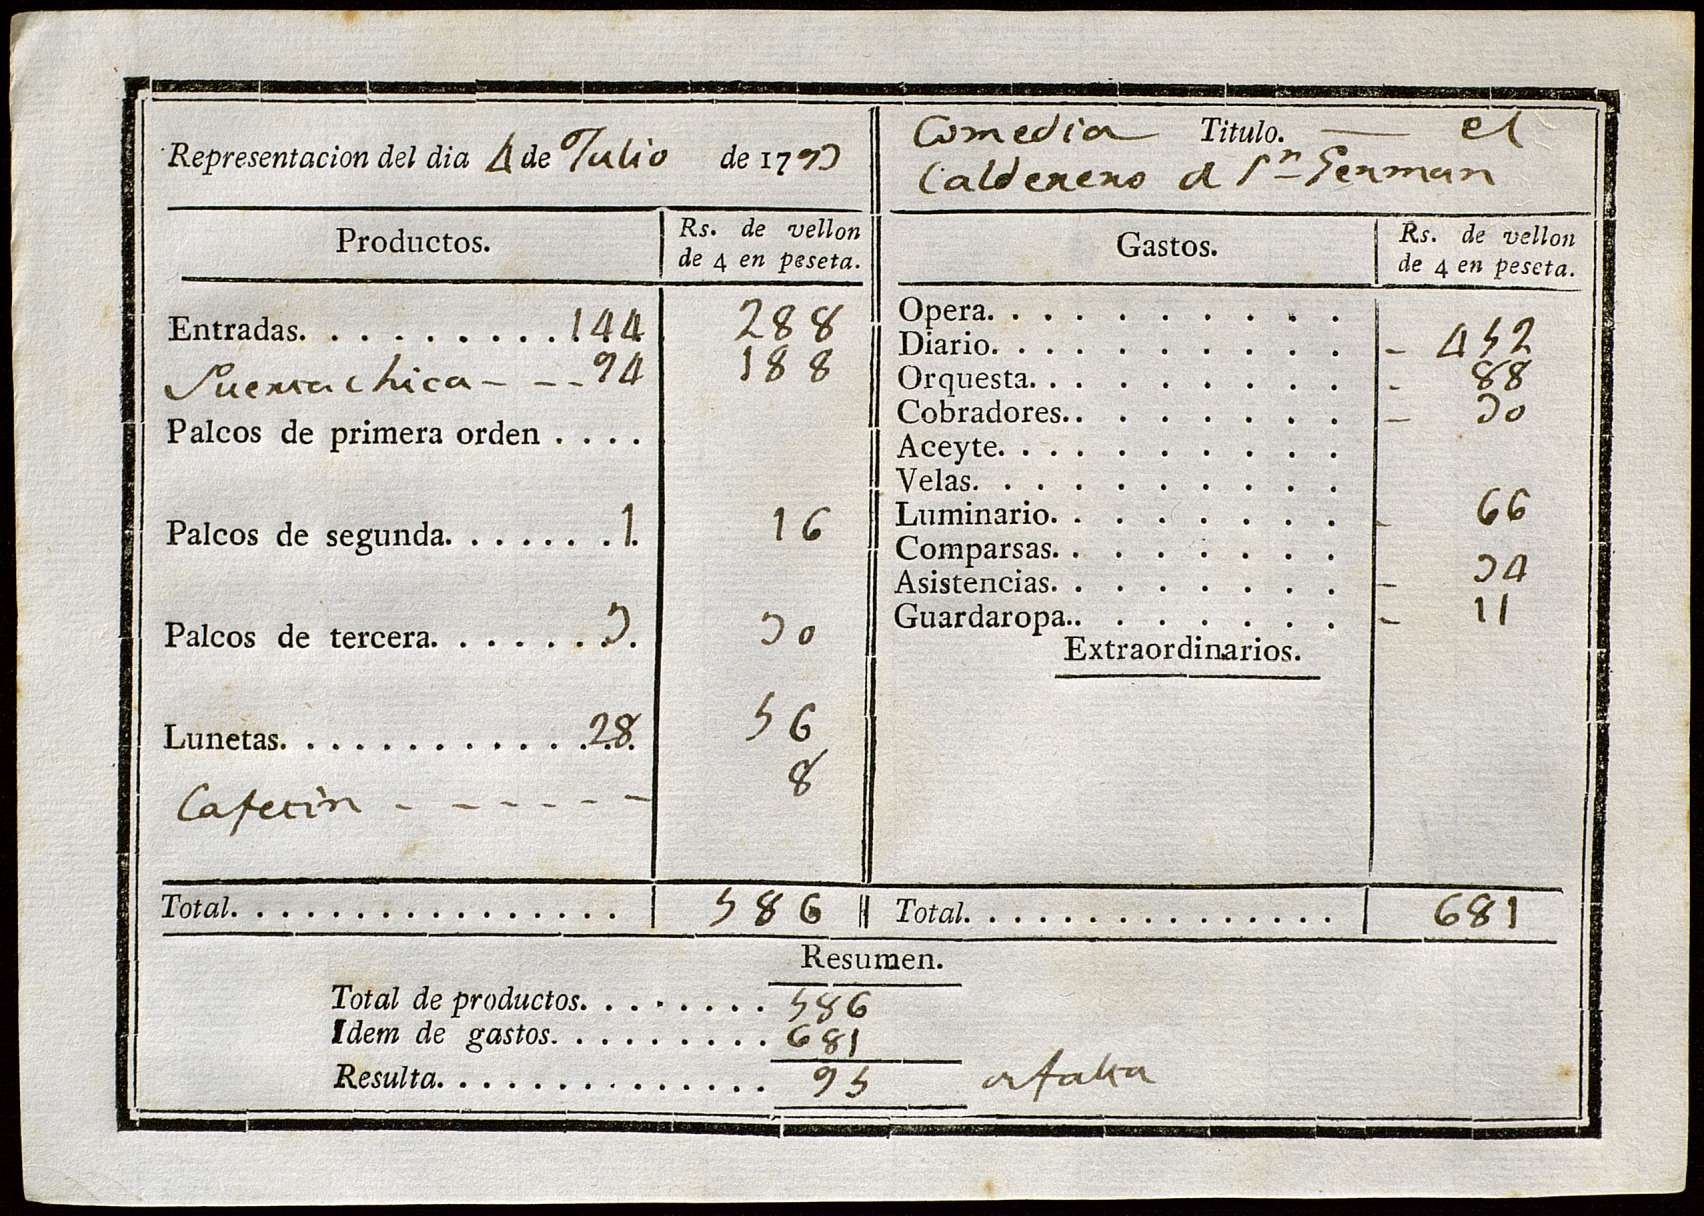 Representacion del dia 4 de Julio de 1793
Comedia Titulo. — el
Calderero d Sn German
Productos.
Rs. de vellon
de 4 en peseta.
Entradas. . . . . . . . . . 144 288
Puerta chica - - - 94 188
Palcos de primera orden . . . .
Palcos de segunda. . . . . . . . 1. 16
Palcos de tercera. . . . . . . 3. 30
Lunetas. . . . . . . . . . . . . . 28 56
Cafetin - - - - - - - 8
Total. . . . . . . . . . . . . . . . 586
Gastos.
Rs. de vellon
de 4 en peseta.
Opera. . . . . . . . . .
Diario. . . . . . . . . . - 452
Orquesta. . . . . . . . . - 88
Cobradores.. . . . . . . . - 30
Aceyte. . . . . . . . . .
Velas. . . . . . . . . . .
Luminario. . . . . . . . . - 66
Comparsas. . . . . . . . .
Asistencias. . . . . . . . - 34
Guardaropa.. . . . . . . . - 11
Extraordinarios.
Total. . . . . . . . . . . . . . . 681
Resumen.
Total de productos. . . . . . . . 586
Idem de gastos. . . . . . . . . . 681
Resulta. . . . . . . . . . . . . . 95 falta